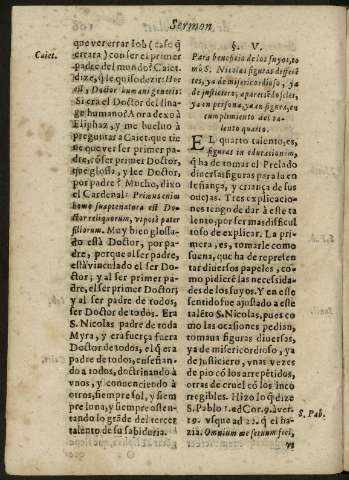 Sermon
Caiet.
que ver errar Iob (caso q̃
errara) con ser el primer
padre del mundo? Caiet.
dize, q̃ le quiso dezir: Hoc
est, Doctor humani generis:
Si era el Doctor del lina-
ge humano? Aora dexo à
Eliphaz, y me bueluo à
preguntar a Caiet. que tie
ne que ver ser primer pa-
dre, cõ ser primer Doctor,
que glossa, y lee Doctor,
por padre? Mucho, dixo
el Cardenal: Primus enim
homo suapte natura est Do-
ctor reliquorum, vipotè pater
filiorum. Muy bien glossa-
do està Doctor, por pa-
dre, porque al ser padre,
està vinculado el ser Do-
ctor; y al ser primer pa-
dre, el ser primer Doctor;
y al ser padre de todos,
ser Doctor de todos. Era
S. Nicolas padre de toda
Myra, y era fuerça fuera
Doctor de todos, el q̃ era
padre de todos, enseñan-
do a todos, doctrinando à
vnos, y conuenciendo à
otros, siempre sol, y siem
pre luna, y siempre osten-
tando lo grãde del tercer
talento de su sabiduria.
§. V.
Para beneficio de los suyos, to
mò S. Nicolas figuras diferẽ
tes, ya de misericordioso, ya
de justiciero; apareciẽdoseles,
ya en persona, ya en figura, en
cumplimiento del ta-
lento quarto.
EL quarto talento, es,
figuras in educationem,
q̃ ha de tomas el Prelado
diuersas figuras para la en
señança, y criança de sus
ouejas. Tres explicacio-
nes tengo de dar à este ta
lento, por ser mas dificul
toso de explicar. La pri-
mera, es, tomarle como
suena, que ha de represen
tar diuersos papeles, co-
mo pidierẽ las necessida-
des de los suyos. Y en este
sentido fue ajustado a este
talẽto S. Nicolas, pues co
mo las ocasiones pedian,
tomaua figuras diuersas,
ya de misericordioso, ya
de justiciero, vnas vezes
de pio có los arrepẽtidos,
otras de cruel cõ los inco
rregibles. Hizo lo q̃ dize
S. Pablo 1. ad Cor. 9. à ver.
19. vsque ad 22. q̃ el ha-
zia. Omnium me seruum feci,
S. Pab.
vt